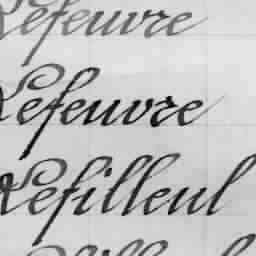 Lefeuvre
Lefeuvre
Lefilleul